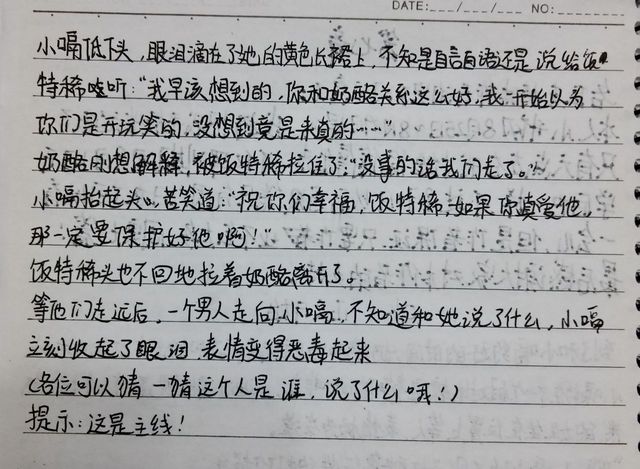 DATE:___/___/___ NO:
小嗝低下头，眼泪滴在了她的黄色长裙上，不知是自言自语还是说给饭
特稀哇听：“我早该想到的，你和奶酪关系这么好，我一开始以为
你们是开玩笑的，没想到竟是来真的……”
奶酪刚想解释，被饭特稀拉住了：“没事的话我们走了。”
小嗝抬起头，苦笑道：“祝你们幸福，饭特稀，如果你真爱他，
那一定要保护好他啊！”
饭特稀头也不回地拉着奶酪离开了。
等他们走远后，一个男人走向小嗝，不知道和她说了什么，小嗝
立刻收起了眼泪 表情变得恶毒起来
(各位可以猜一猜这个人是谁，说了什么哦！)
提示：这是主线！